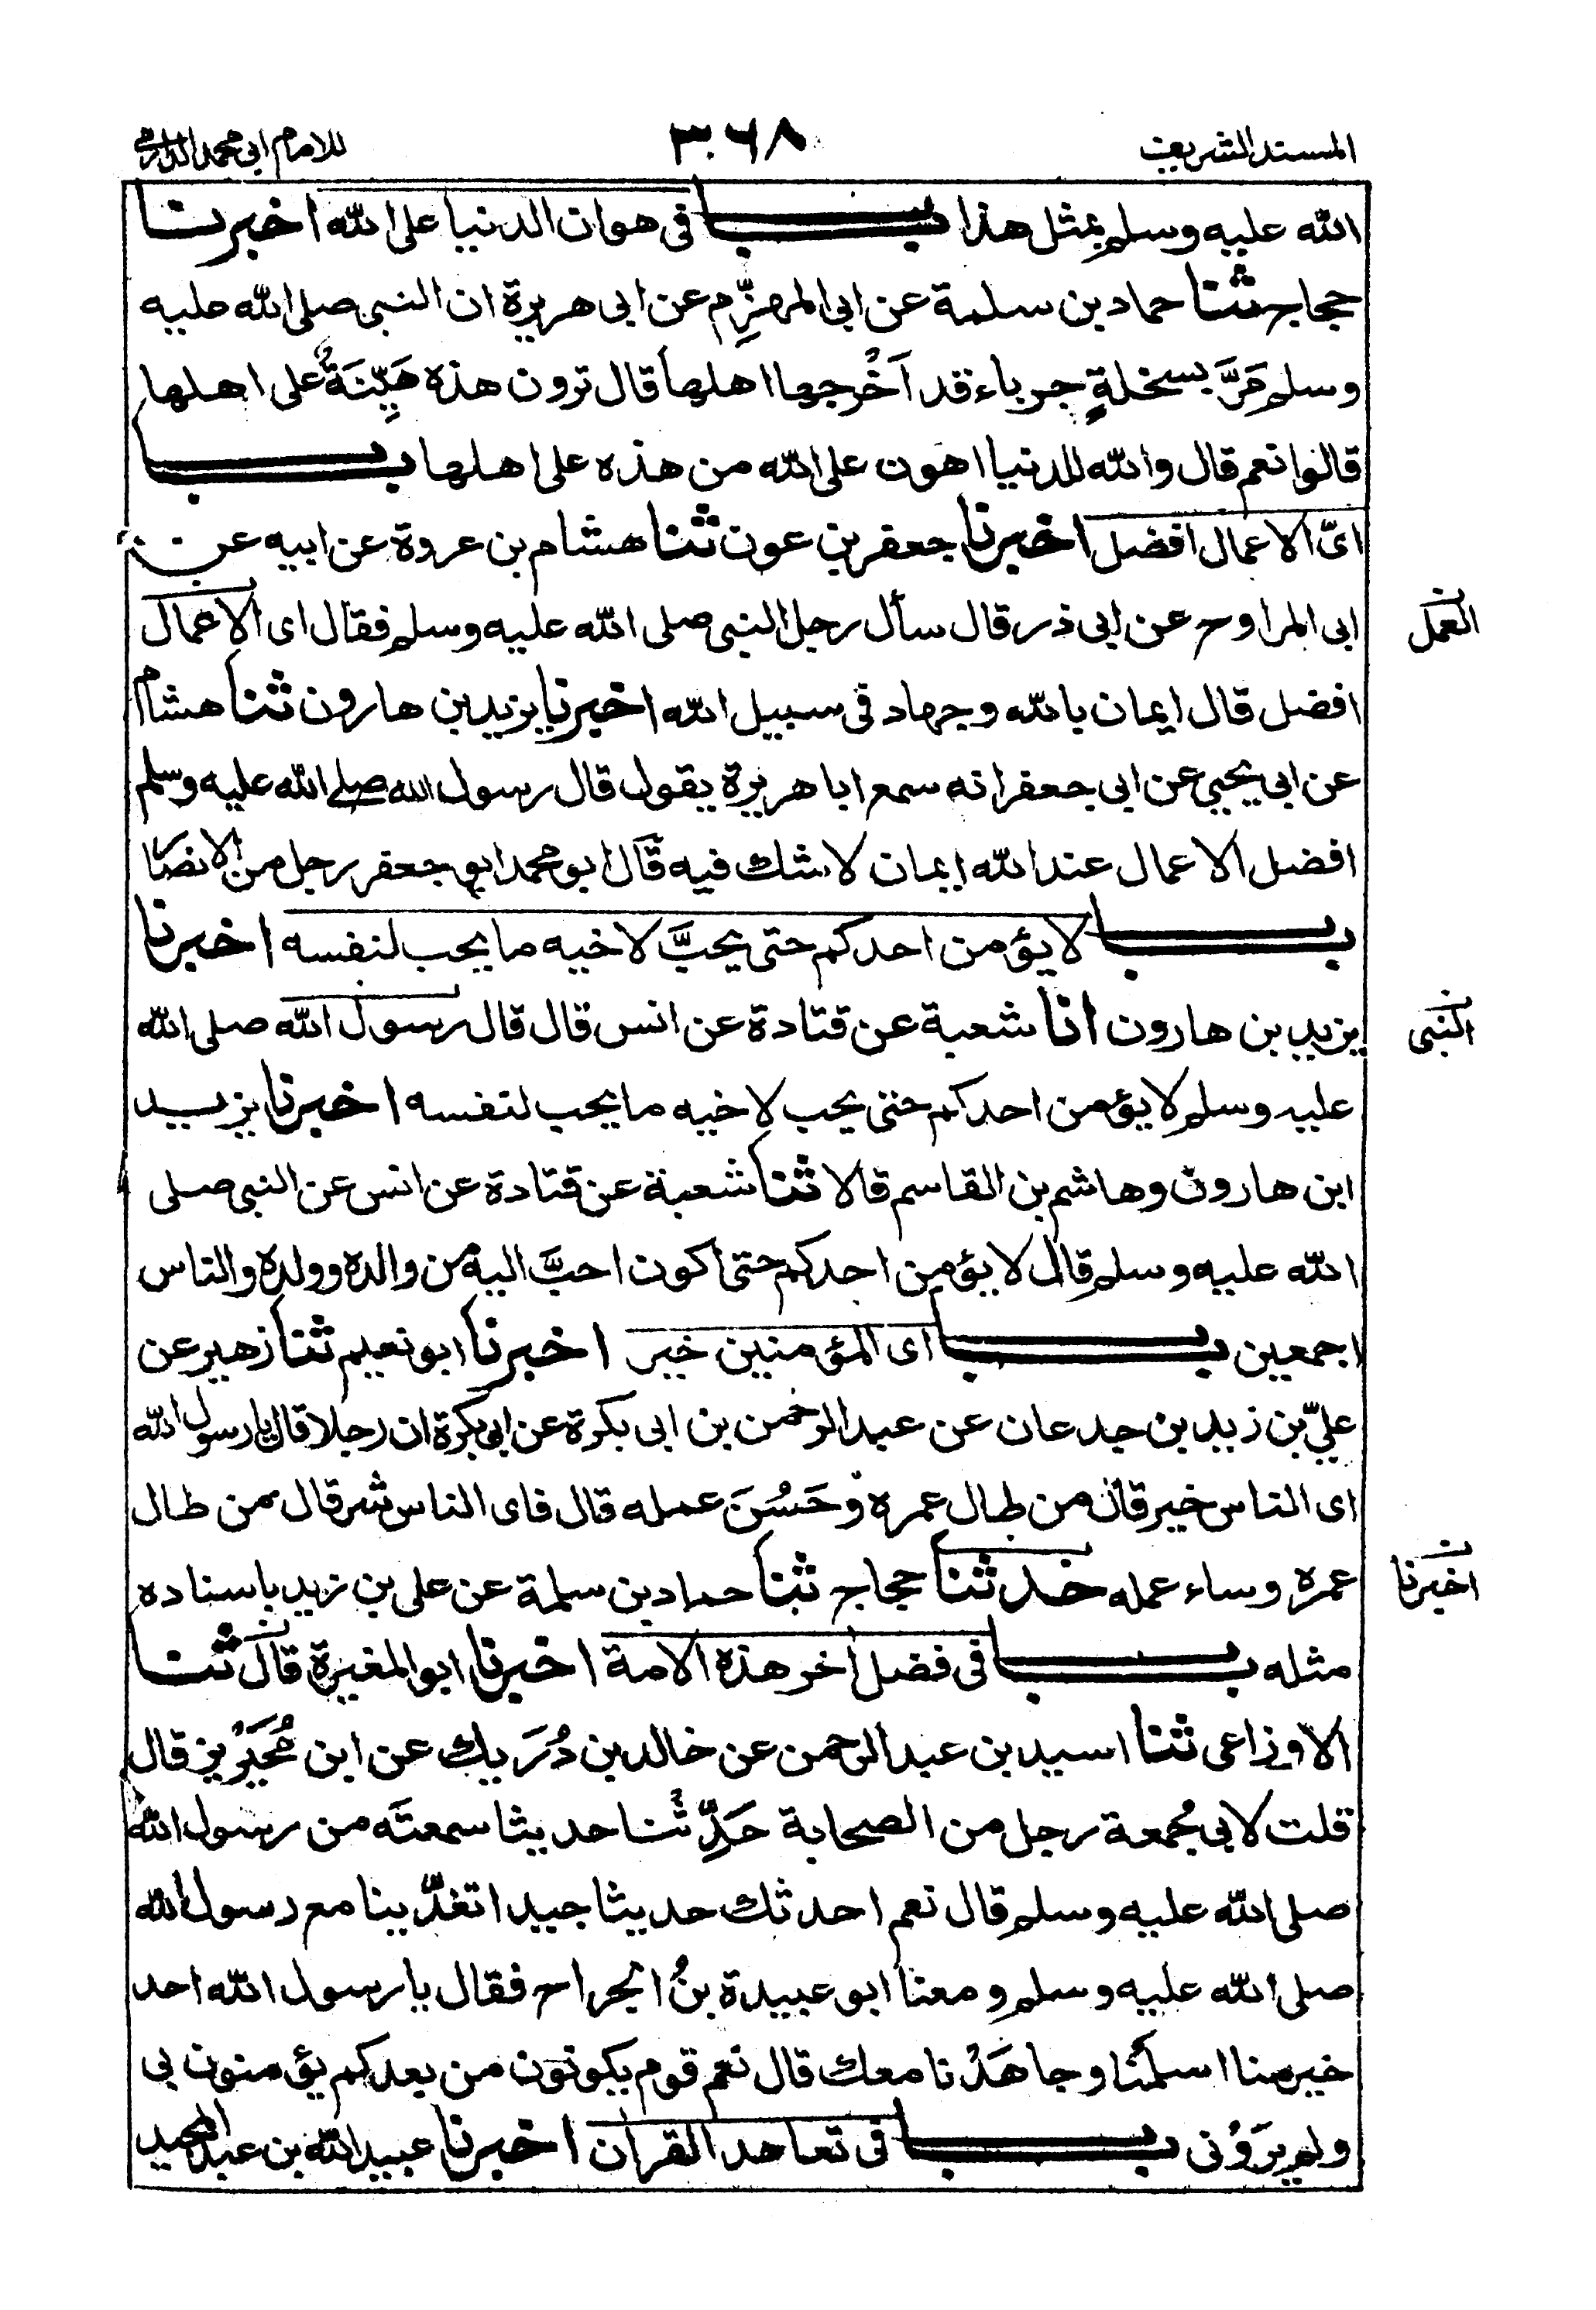 المسند الشريف ٣٦٨ للامام ابى محمد الدارمى
الله عليه وسلم بمثل هذا باب فى هوان الدنيا على الله اخبرنا
حجاج ثنا حماد بن سلمة عن ابى المهزِّم عن ابى هريرة ان النبى صلى الله عليه
وسلم مَرَّ بسخلةٍ جرباء قد اَخْرجها اهلها قال ترون هذه هَيِّنَةٌ على اهلها
قالوا نعم قال والله للدنيا اهون على الله من هذه على اهلها باب
اىّ الاعمال افضل اخبرنا جعفر بن عون ثنا هشام بن عروة عن ابيه عن
ابى المراوح عن ابى ذر قال سأل رجل النبى صلى الله عليه وسلم فقال اى الاعمال
العمل
افضل قال ايمان بالله وجهاد فى سبيل الله اخبرنا يزيد بن هارون ثنا هشام
عن ابى يحيى عن ابى جعفر انه سمع ابا هريرة يقول قال رسول الله صلى الله عليه وسلم
افضل الاعمال عند الله ايمان لا شك فيه قال ابو محمد ابو جعفر رجل من الانصار
باب لا يؤمن احدكم حتى يحبَّ لاخيه ما يحب لنفسه اخبرنا
يزيد بن هارون انا شعبة عن قتادة عن انس قال قال رسول الله صلى الله
النبى
عليه وسلم لا يؤمن احدكم حتى يحب لاخيه ما يحب لنفسه اخبرنا يزيد
ابن هارون وهاشم بن القاسم قالا ثنا شعبة عن قتادة عن انس عن النبى صلى
الله عليه وسلم قال لا يؤمن احدكم حتى اكون احبَّ اليه من والده وولده والناس
اجمعين باب اى المؤمنين خير اخبرنا ابو نعيم ثنا زهير عن
علىّ بن زيد بن جدعان عن عبد الرحمن بن ابى بكرة عن ابى بكرة ان رجلا قال يا رسول الله
اى الناس خير قال من طال عمره وحَسُنَ عمله قال فاى الناس شر قال من طال
عمره وساء عمله حدثنا حجاج ثنا حماد بن سلمة عن على بن زيد باسناده
اخبرنا
مثله باب فى فضل اخر هذه الامة اخبرنا ابو المغيرة قال ثنا
الاوزاعى ثنا اسيد بن عبد الرحمن عن خالد بن دُرَيك عن ابن مُحَيْريز قال
قلت لابى جُمعة رجل من الصحابة حَدِّثْنا حديثا سمعتَه من رسول الله
صلى الله عليه وسلم قال نعم احدثك حديثا جيدا تغدّينا مع رسول الله
صلى الله عليه وسلم ومعنا ابو عبيدة بنُ الجراح فقال يا رسول الله احد
خير منا اسلمْنا وجاهَدْنا معك قال نعم قوم يكونون من بعدكم يؤمنون بى
ولم يرَوْنى باب فى تعاهد القران اخبرنا عبيد الله بن عبد المجيد